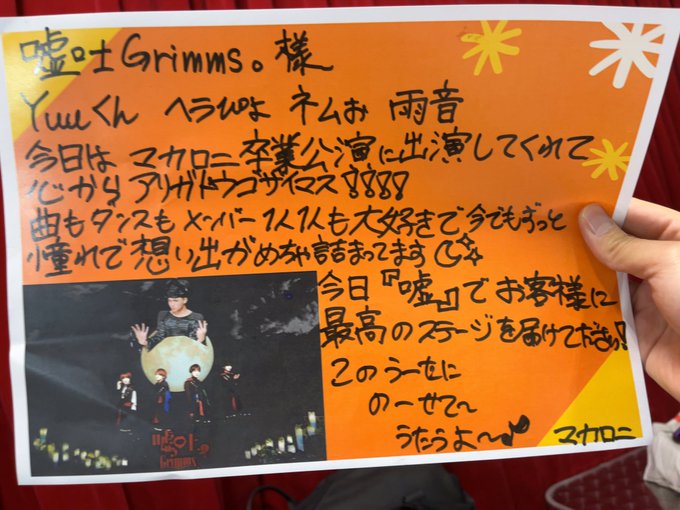 嘘吐Grimms。様
Yuuくん ヘラぴよ ネムお 雨音
今日は マカロニ卒業公演に出演してくれて
心から アリガトウゴザイマス!!!!
曲もダンスも メンバー1人1人も大好きで、今でもずっと
憧れで想い出がめちゃ詰まってます
今日『嘘』でお客様に
最高のステージを届けてださい!
このうーせに
のーせて〜
うたうよ〜♪
マカロニ
嘘吐
Grimms